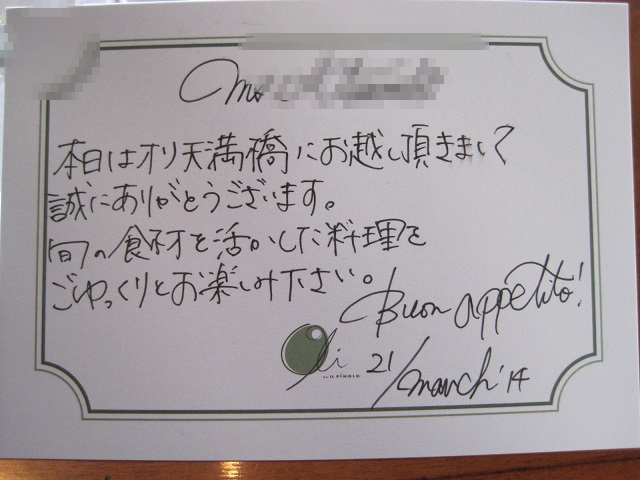 本日はオリ天満橋にお越し頂きまして
誠にありがとうございます。
旬の食材を活かした料理を
ごゆっくりとお楽しみ下さい。
Buon appetito!
Oli
by IL PINOLO
21/march '14